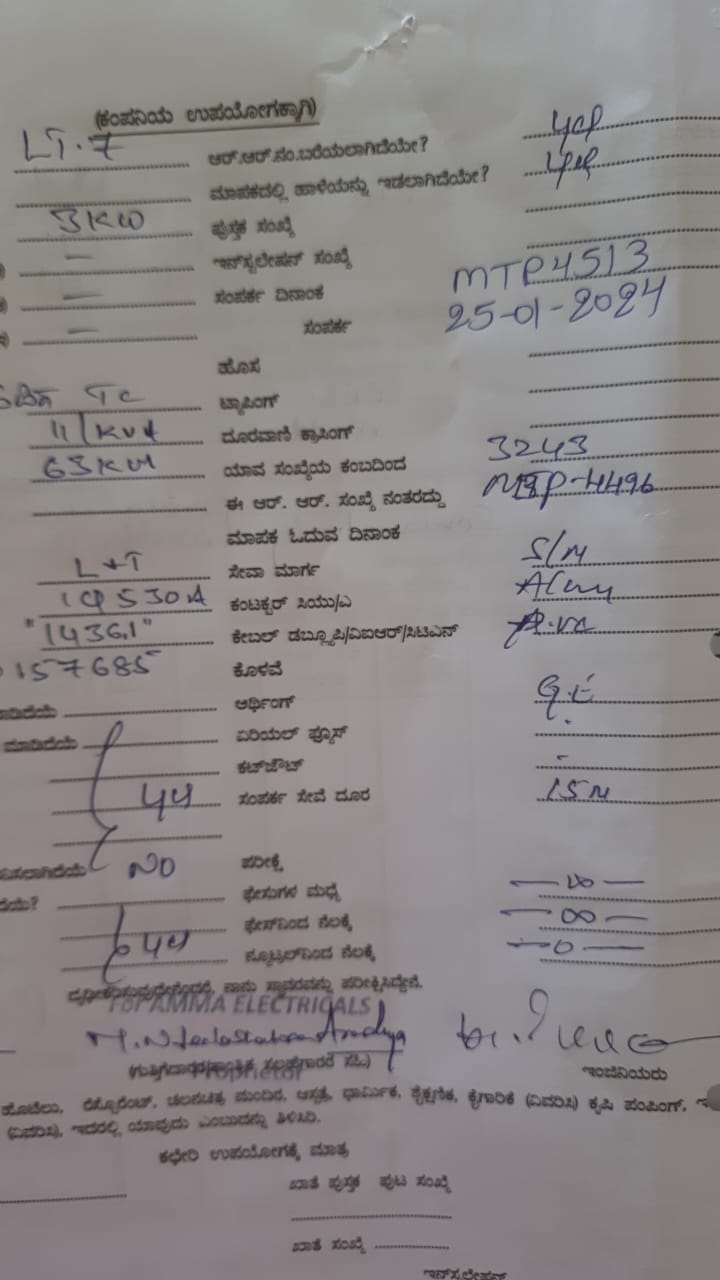 (ಕಂಪನಿಯ ಉಪಯೋಗಕ್ಕಾಗಿ)
LT.7 ಆರ್.ಆರ್.ನಂ.ಬರೆಯಲಾಗಿದೆಯೇ?
ಮಾಪಕದಲ್ಲಿ ಹಾಳೆಯನ್ನು ಇಡಲಾಗಿದೆಯೇ?
3KW ಪುಸ್ತಕ ಸಂಖ್ಯೆ
— ಇನ್‌ಸ್ಟಲೇಷನ್ ಸಂಖ್ಯೆ MTP4513
— ಸಂಪರ್ಕ ದಿನಾಂಕ 25-01-2024
— ಸಂಪರ್ಕ
ಹೊಸ
TC ಟ್ಯಾಪಿಂಗ್
11/KVA ದೂರವಾಣಿ ಕ್ರಾಸಿಂಗ್
63KVA ಯಾವ ಸಂಖ್ಯೆಯ ಕಂಬದಿಂದ 3243
ಈ ಆರ್. ಆರ್. ಸಂಖ್ಯೆ ನಂತರದ್ದು MTP-4496
ಮಾಪಕ ಓದುವ ದಿನಾಂಕ
L+T ಸೇವಾ ಮಾರ್ಗ S/M
1Φ530A ಕಂಟಕ್ಟರ್ ಸಿಯು/ಎ
"14361" ಕೇಬಲ್ ಡಬ್ಲ್ಯೂಪಿ/ವಿಐಆರ್/ಸಿಟಿಎಸ್
157685 ಕೊಳವೆ
ಮಾಡಿದೆಯೆ ಅರ್ಥಿಂಗ್ G.E
ಮಾಡಿದೆಯೆ ಏರಿಯಲ್ ಫ್ಯೂಸ್
ಕಟ್‌ಔಟ್ -
ಸಂಪರ್ಕ ಸೇವೆ ದೂರ 15M
NO ಪರೀಕ್ಷೆ
ದೆಯೆ? ಫೇಸುಗಳ ಮಧ್ಯೆ — ∞ —
ಫೇಸ್‌ನಿಂದ ನೆಲಕ್ಕೆ — ∞ —
ನ್ಯೂಟ್ರಲ್‌ನಿಂದ ನೆಲಕ್ಕೆ — 0 —
ದೃಢೀಕರಿಸುವುದೇನೆಂದರೆ, ನಾನು ಸ್ಥಾವರವನ್ನು ಪರೀಕ್ಷಿಸಿದ್ದೇನೆ.
For AMMA ELECTRICALS
Proprietor
ಇಂಜಿನಿಯರು
ಹೊಟೆಲು, ರೆಸ್ಟೊರೆಂಟ್, ಚಲನಚಿತ್ರ ಮಂದಿರ, ಆಸ್ಪತ್ರೆ, ಧಾರ್ಮಿಕ, ಶೈಕ್ಷಣಿಕ, ಕೈಗಾರಿಕೆ (ವಿವರಿಸಿ) ಕೃಷಿ ಪಂಪಿಂಗ್,
(ವಿವರಿಸಿ), ಇದರಲ್ಲಿ ಯಾವುದು ಎಂಬುದನ್ನು ತಿಳಿಸಿರಿ.
ಕಛೇರಿ ಉಪಯೋಗಕ್ಕೆ ಮಾತ್ರ
ಖಾತೆ ಪುಸ್ತಕ ಪುಟ ಸಂಖ್ಯೆ
ಖಾತೆ ಸಂಖ್ಯೆ
ಇನ್‌ಸ್ಟಲೇಷನ್